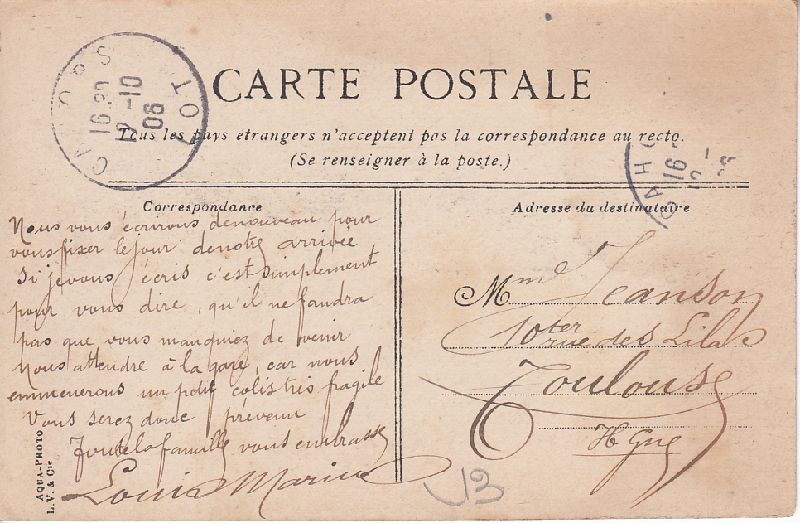 CARTE POSTALE
Tous les pays étrangers n'acceptent pas la correspondance au recto.
(Se renseigner à la poste.)
CAHORS LOT
16 30
12-10
06
CAHO
16
12 -
Correspondance
Nous vous écrirons denouveau pour
vousfixer lejour denotre arrivée
Si jevous écris c'est simplement
pour vous dire, qu'il ne faudra
pas que vous manquiez de venir
nous attendre à la gare, car nous
emmenerons un petit colis très fragile
Vous serez donc prévenir
Toute la famille vous embrasse
Louis Marius
Adresse du destinataire
Mme Jeanson
10ter rue des Lilas
Toulouse
Hte Gne
AQUA-PHOTO
L. V. & Cie